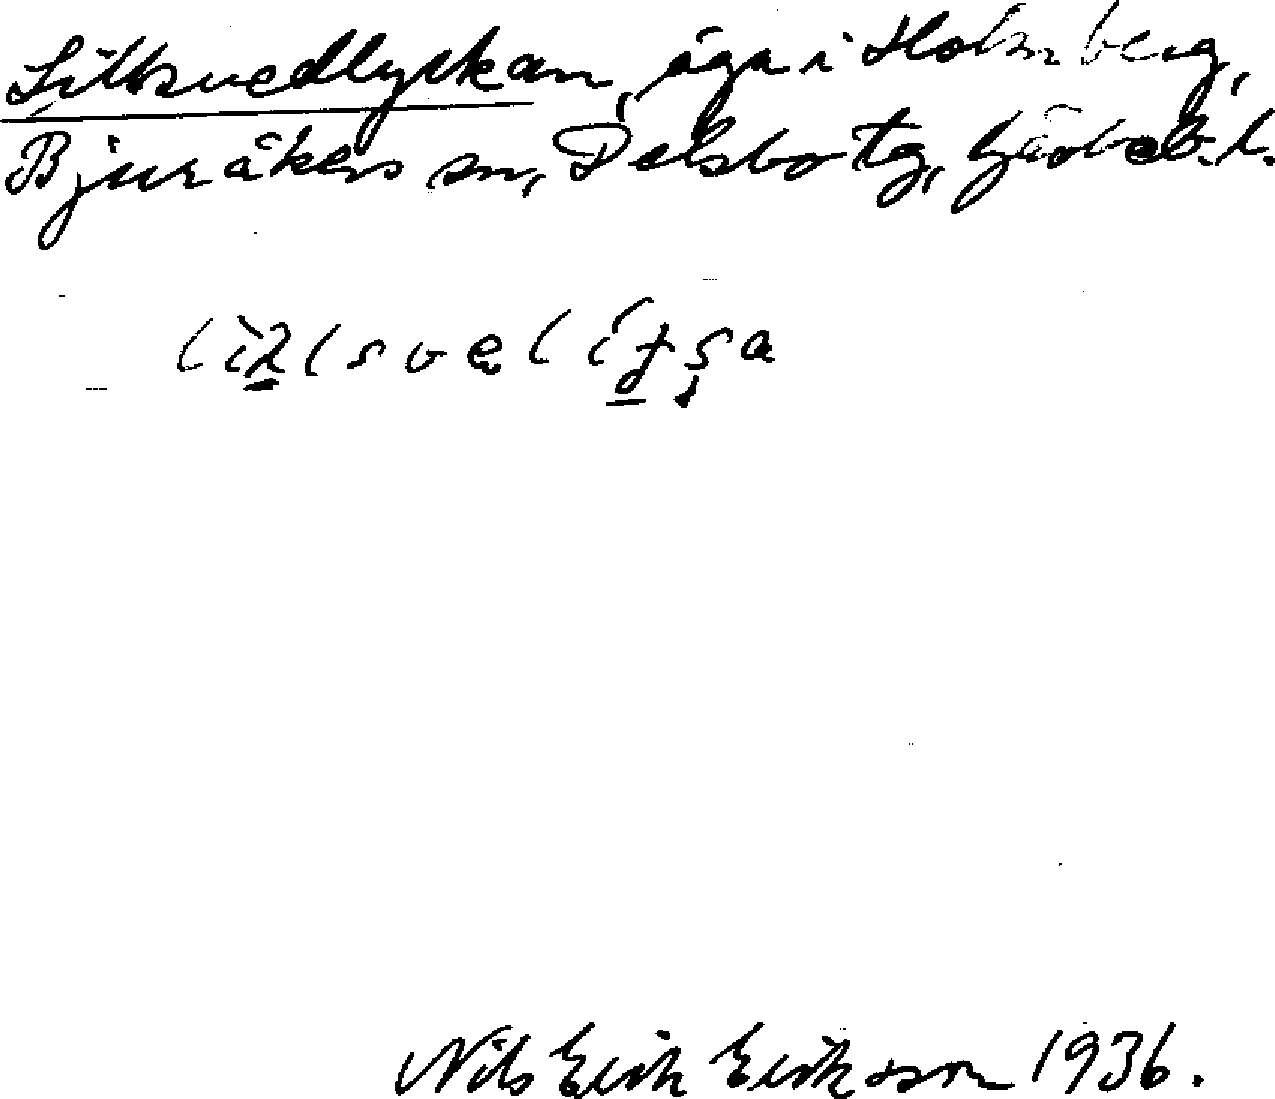 Lillsvedlyckan, äga i Holmberg,
Bjuråkers sn, Delsbo tg, Gävleb. l.
Nils Erik Eriksson 1936.